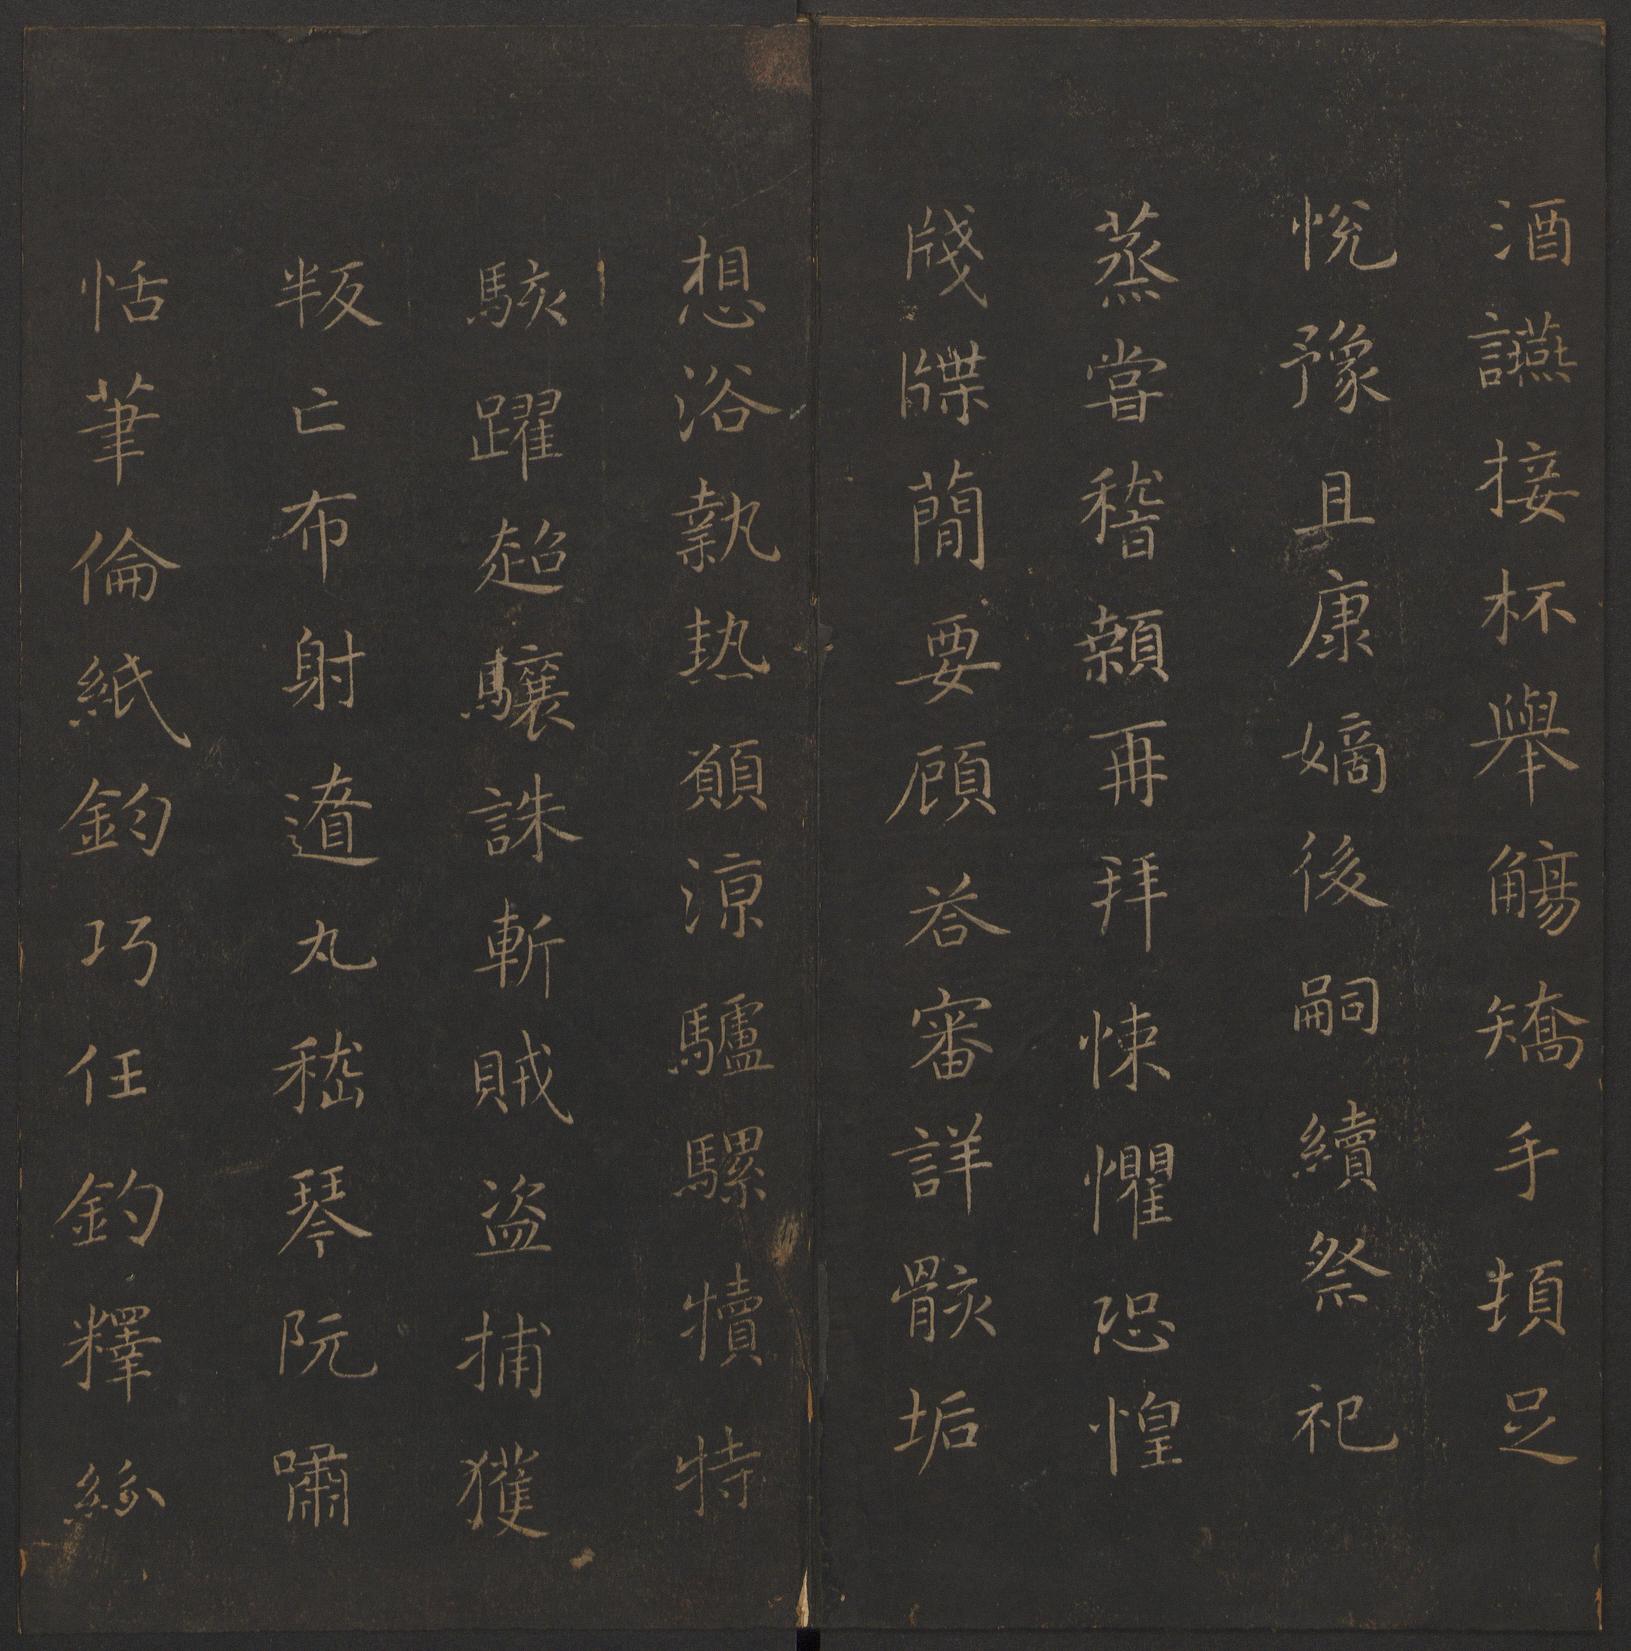 酒讌接杯舉觴矯手頓足
悅豫且康嫡後嗣續祭祀
蒸嘗稽顙再拜悚懼恐惶
牋牒蕳要顧荅審詳骸垢
想浴執热願涼驢騾犢特
駭躍超驤誅斬賊盗捕獲
叛亡布射遼丸嵇琴阮嘯
恬筆倫紙鈞巧任釣釋紛